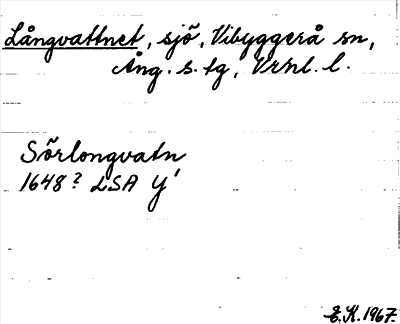 Långvattnet, sjö, Vibyggerå sn,
Ång. s. tg, Vrnl. l.
Sörlongvatn
1648? LSA Y'
E.K. 1967.